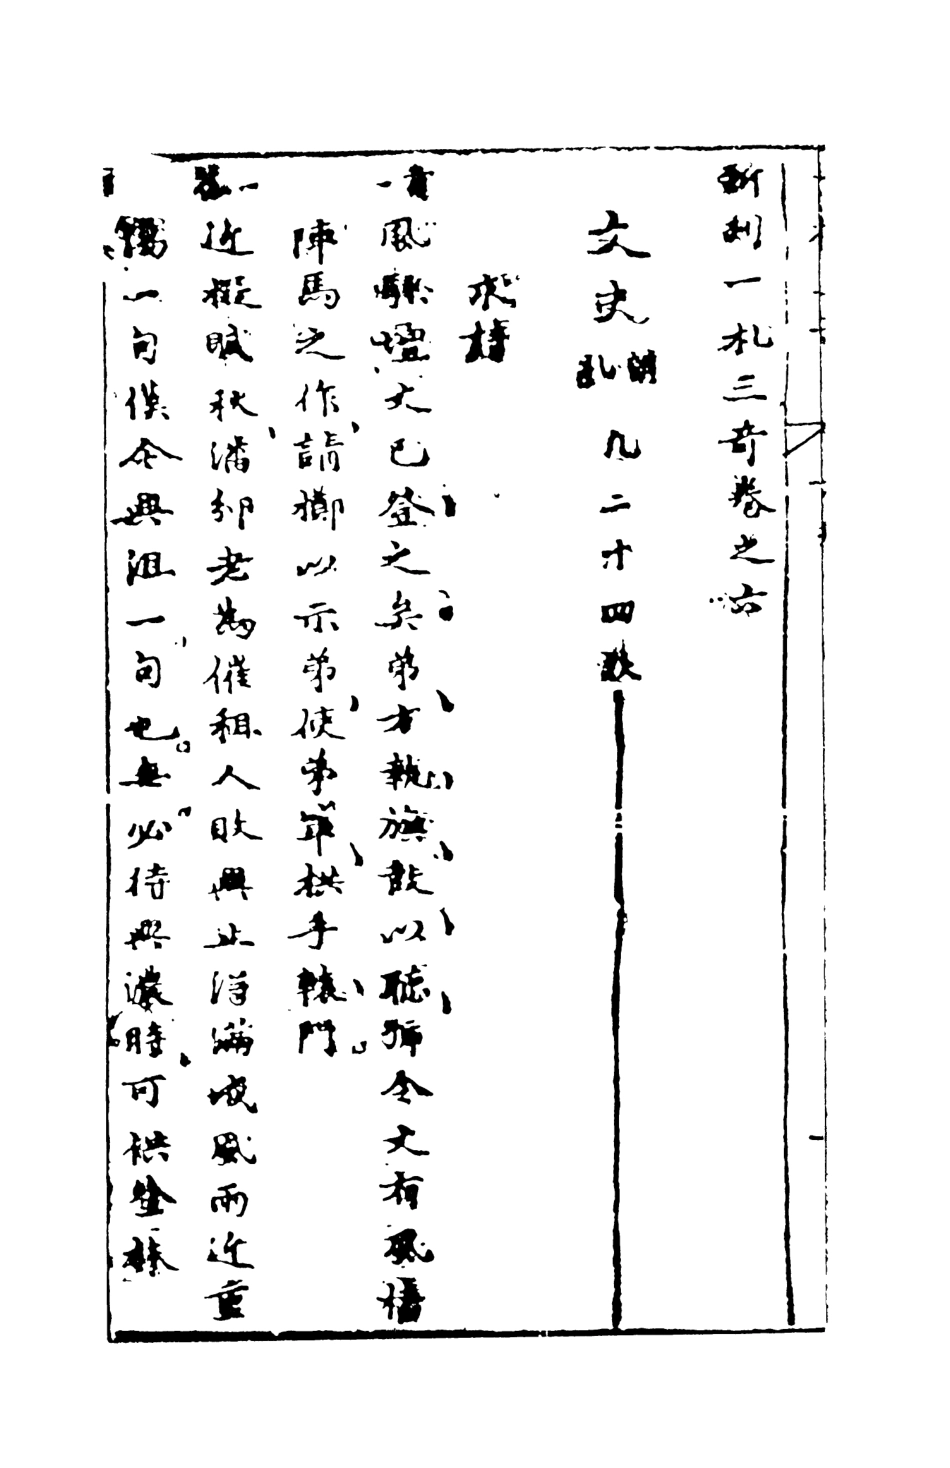 新刻一札三奇卷之六
文史 凡二十四
求
一 風騷壇丈已登之矣弟方執旗鼓以聽號令丈有風檣
陣馬之作請擲以示弟使弟拱手轅門
一 近擬賦秋潘邠老為催租人敗興止得滿城風雨近重
陽一句僕今興沮一句也無必待興濃時可供